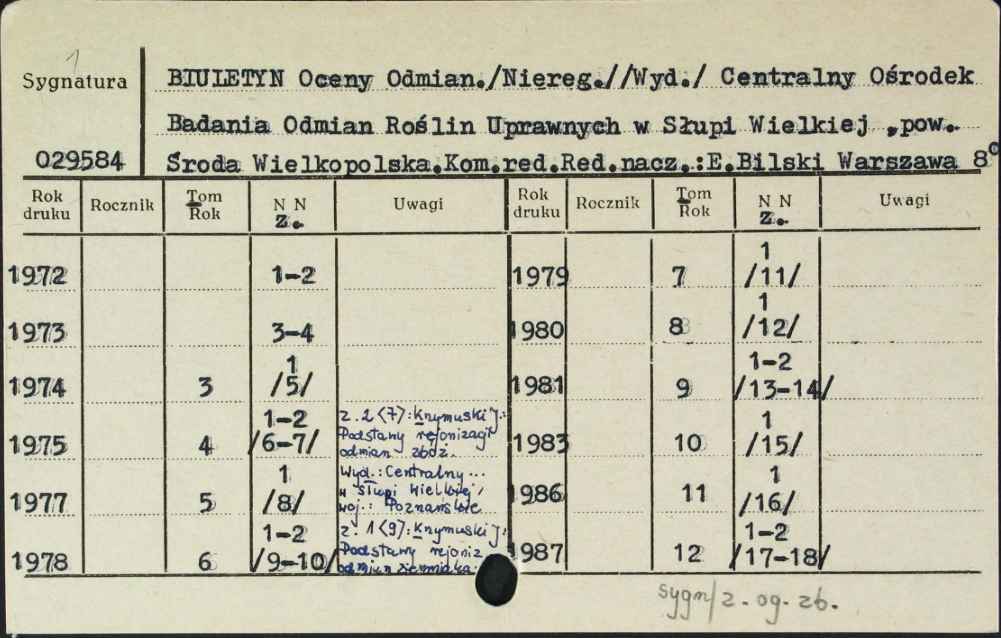 1
Sygnatura
BIULETYN Oceny Odmian./Niereg.//Wyd./ Centralny Ośrodek
Badania Odmian Roślin Uprawnych w Słupi Wielkiej ,pow.
029584
Środa Wielkopolska.Kom.red.Red.nacz.:E.Bilski Warszawa 8°
Rok druku Rocznik Tom Rok N N z. Uwagi Rok druku Rocznik Tom Rok N N z. Uwagi
1972 1-2 1979 7 1 /11/
1973 3-4 1980 8 1 /12/
1974 3 1 /5/ 1981 9 1-2 /13-14/
1975 4 1-2 /6-7/ z. 2<7>: Krymuski J.: Podstawy rejonizacji odmian zbóż. 1983 10 1 /15/
1977 5 1 /8/ Wyd.: Centralny... w Słupi Wielkiej, woj.: Poznańskie 1986 11 1 /16/
1978 6 1-2 /9-10/ z. 1<9>: Krymuski J: Podstawy rejoniz odmian ziemniaka. 1987 12 1-2 /17-18/
sygn/2.09.26.